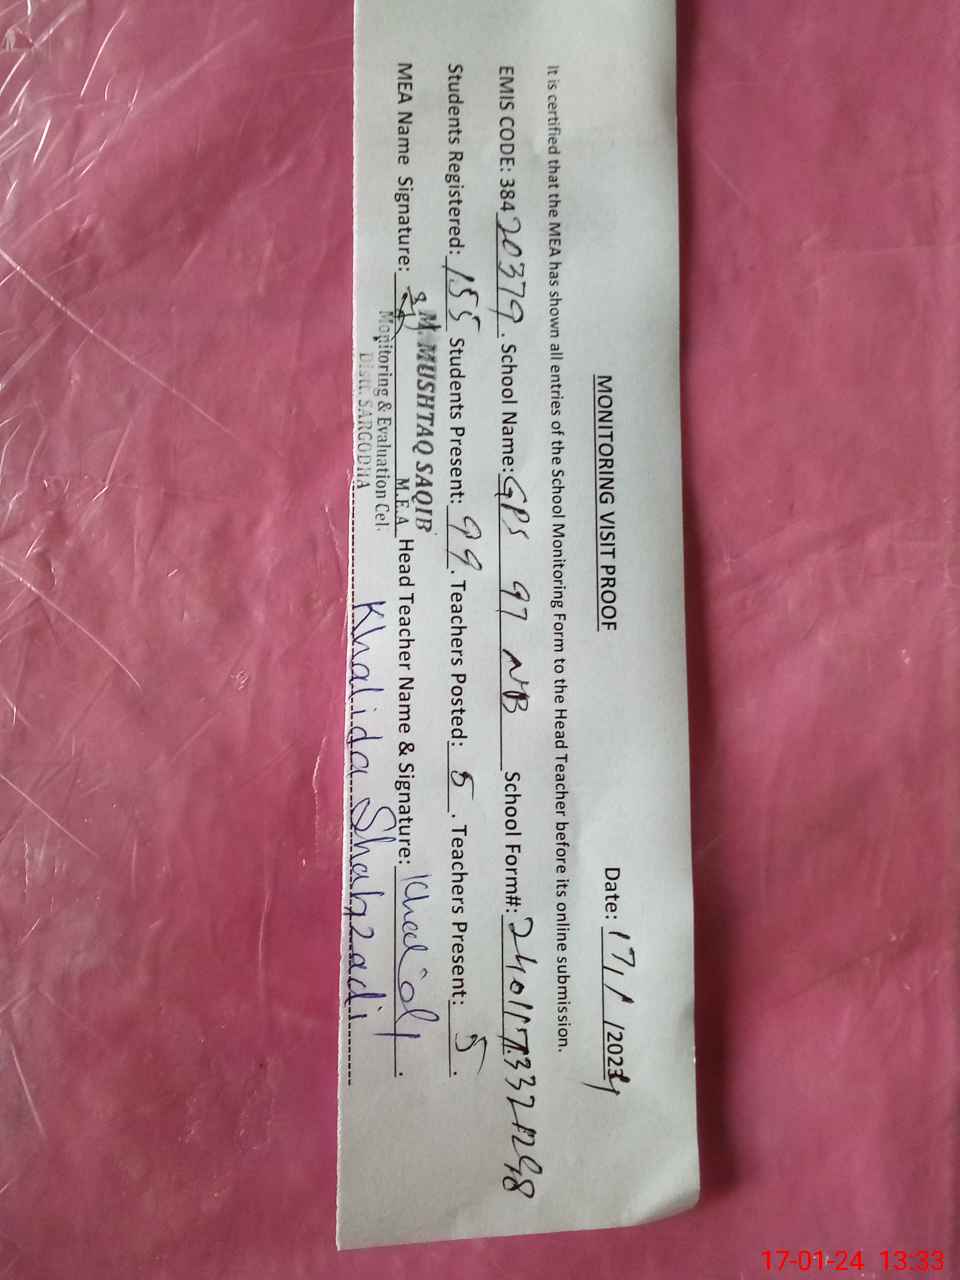 MONITORING VISIT PROOF
Date: 17/1/2024
It is certified that the MEA has shown all entries of the School Monitoring Form to the Head Teacher before its online submission.
EMIS CODE: 38420379. School Name: GPS 97 NB School Form#:
Students Registered: 155 Students Present: 99. Teachers Posted: 5. Teachers Present: 5.
MEA Name Signature: Head Teacher Name & Signature:
M. MUSHTAQ SAQIB
M.E.A
Monitoring & Evaluation Cel.
Distt. SARGODHA
Khalida Shahzadi
17-01-24 13:33